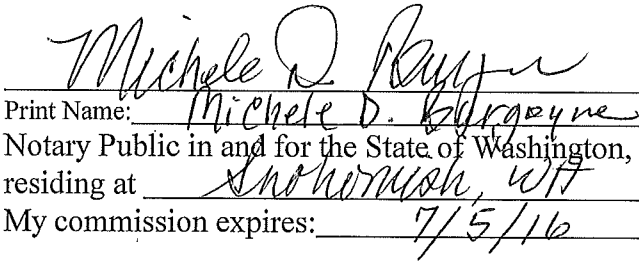 Michele D. Burgoyne
Print Name: Michele D. Burgoyne
Notary Public in and for the State of Washington,
residing at Snohomish, WA
My commission expires: 7/5/16